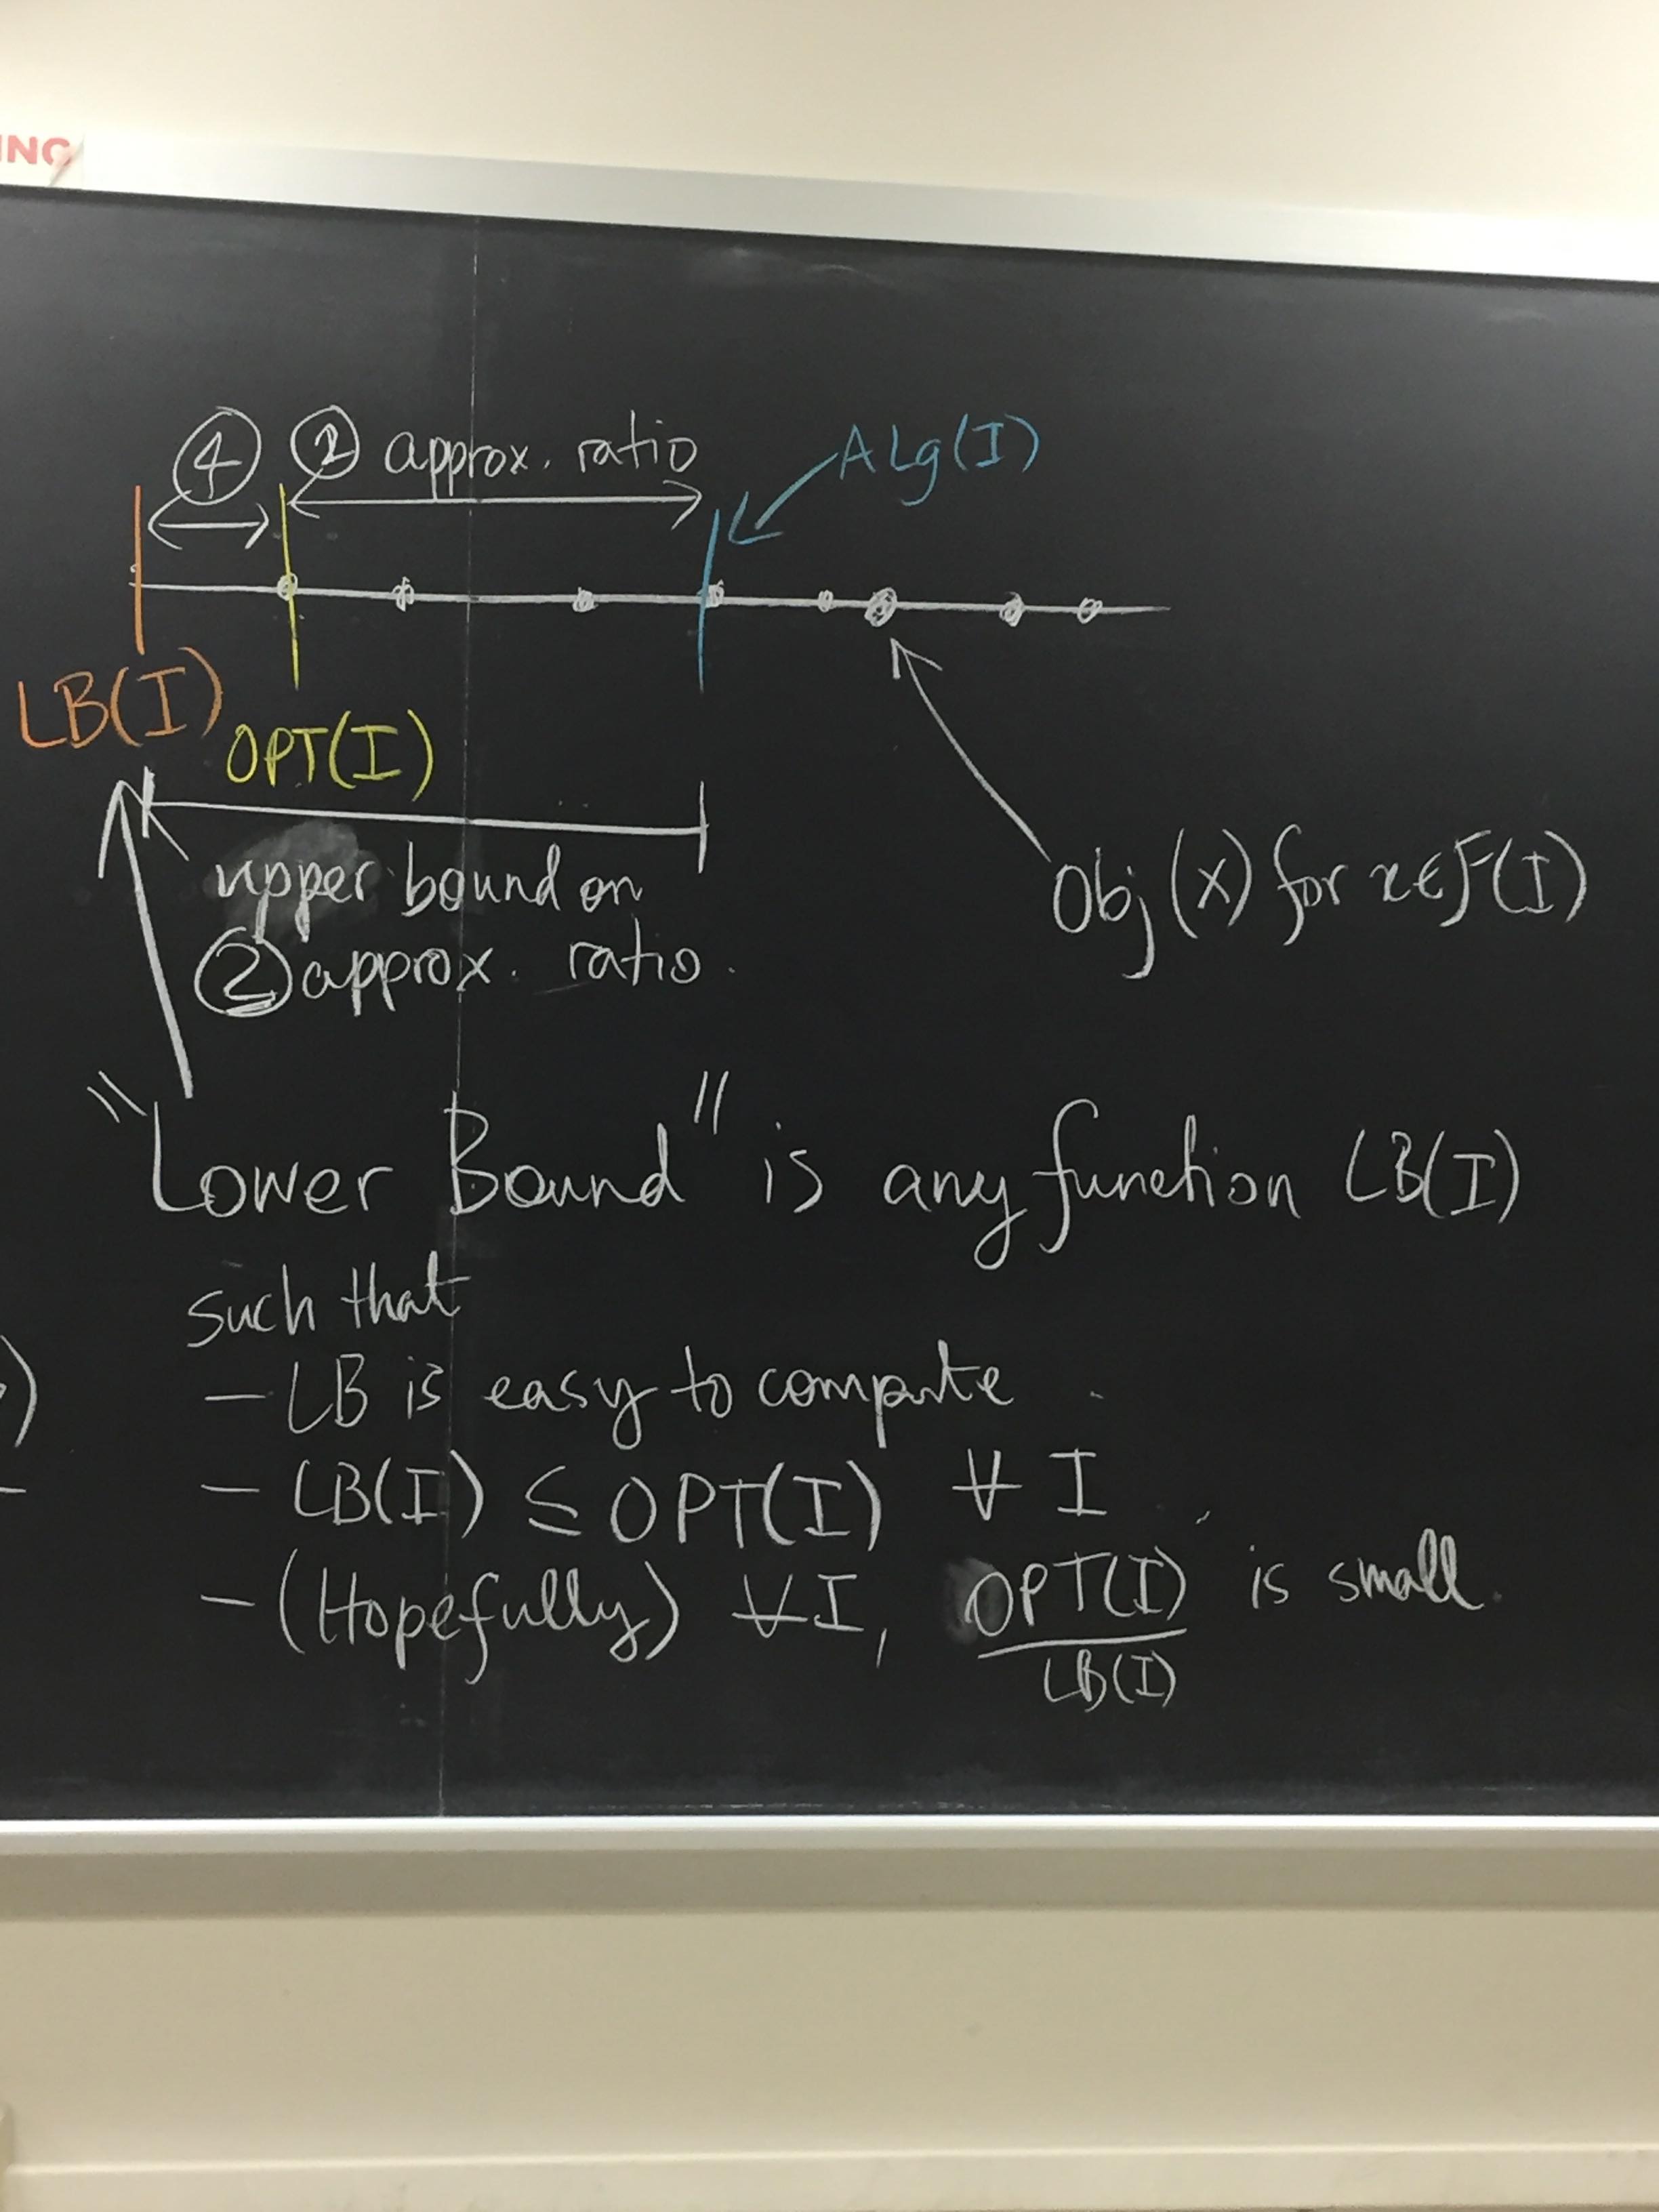 ING
④ ② approx. ratio
ALg(I)
LB(I)
OPT(I)
upper bound on
② approx. ratio.
Obj(x) for x∈F(I)
"Lower Bound" is any function LB(I)
such that
- LB is easy to compute
- LB(I) ≤ OPT(I) ∀ I
- (Hopefully) ∀I, OPT(I) is small.
LB(I)